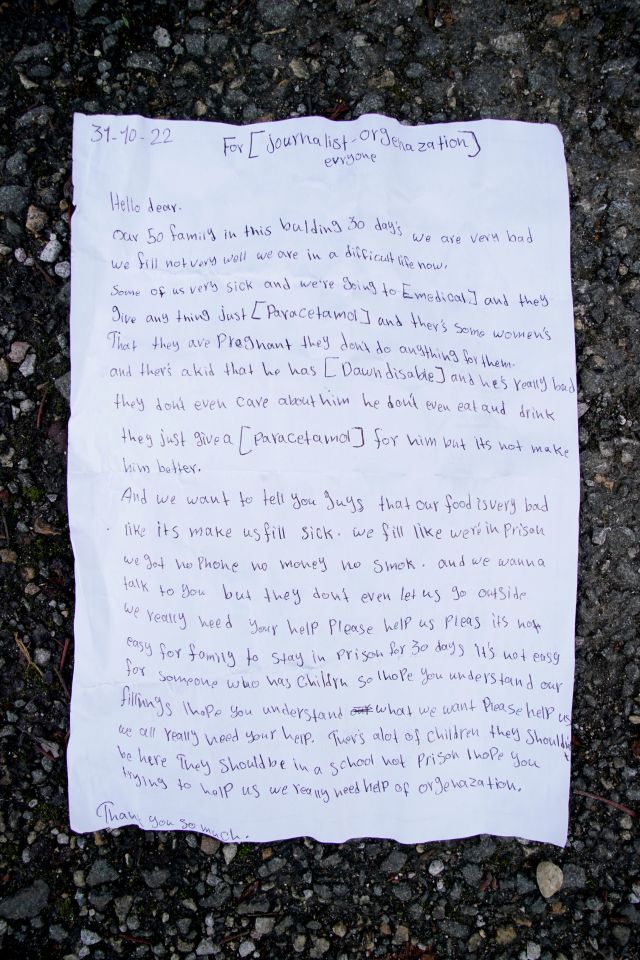 31-10-22
For [journalist-orgenazation]
evryone
Hello dear.
our 50 family in this bulding 30 day's we are very bad
we fill not very well we are in a difficult life now.
some of us very sick and we're going to [medical] and they
give any thing just [Paracetamol] and ther's some women's
That they are Pregnant they don't do anything for them.
and ther's a kid that he has [Dawn disable] and he's really bad
they don't even care about him he don't even eat and drink
they just give a [paracetamol] for him but its not make
him better.
And we want to tell you guys that our food is very bad
like its make us fill sick. we fill like we're in Prison
we got no Phone no money no smok. and we wanna
talk to you but they don't even let us go outside
we really need your help Please help us Pleas its not
easy for family to stay in Prison for 30 days it's not easy
for someone who has children so I hope you understand our
fillings I hope you understand what we want Please help us
we all really need your help. Ther's alot of children they shouldn't
be here They should be in a school not Prison I hope you
trying to help us we really need help of orgenazation.
Thank you so much.